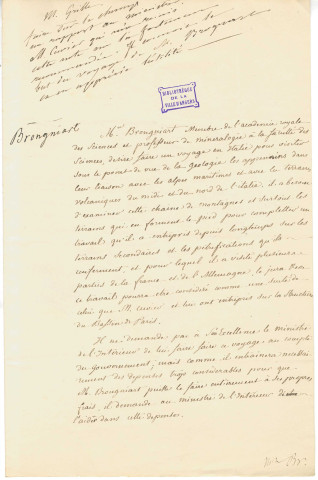 M. Grille
faire dire le champ
un rapport au ministre
M. Cuvier qui me remis
cette note en la
recommandant. Il
but du voyage de M. Brongniart
et en apprécie l'utilité
BIBLIOTHÈQUE
DE LA
VILLE D'ANGERS
Brongniart
Mr. Brongniart Membre de l'académie royale
des Sciences et professeur de minéralogie à la faculté des
Sciences, désire faire un voyage en Italie pour visiter
sous le point de vue de la Géologie les appennins dans
leur liaison avec les alpes maritimes et avec les terrains
volcaniques du midi et du nord de l'italie. il a besoin
d'examiner cette chaine de montagnes et surtout les
terrains qui en forment le pied pour completter un
travail qu'il a entrepris depuis longtemps sur les
terrains secondaires et les pétrifications qu'ils
renferment, et pour lequel il a visité plusieurs
parties de la france et de l'Allemagne, le jura &c.
ce travail pourra être considéré comme une suite de
celui que M. Cuvier et lui ont entrepris sur la Structure
du Bassin de Paris.
Il ne demande pas à Son Excellence le Ministre
de l'Intérieur de lui faire faire ce voyage au compte
du gouvernement; mais comme il entrainera nécessai-
rement des dépenses trop considérables pour que
M. Brongniart puisse le faire entièrement à ses propres
frais, il demande au ministre de l'Intérieur de
l'aider dans cette dépense.